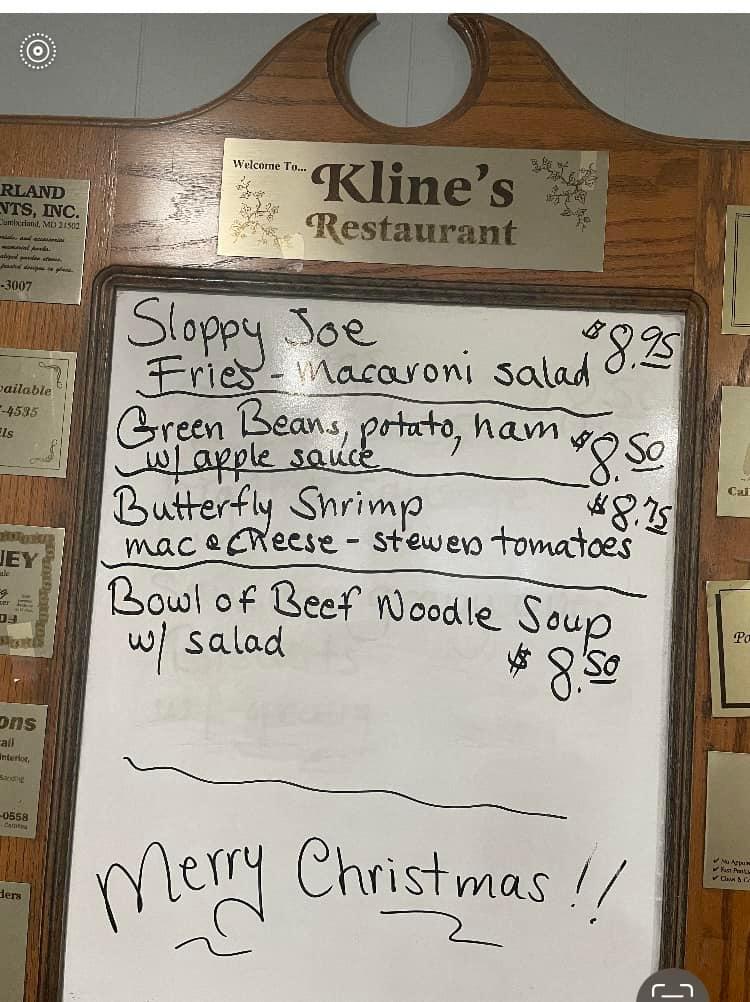 Welcome To...
Kline's
Restaurant
Sloppy Joe $8.95
Fries - Macaroni salad
Green Beans, potato, ham $8.50
w/ apple sauce
Butterfly Shrimp $8.75
mac & Cheese - stewed tomatoes
Bowl of Beef Noodle Soup
w/ salad $8.50
Merry Christmas!!
RLAND
NTS, INC.
Cumberland, MD 21502
-3007
vailable
-4535
ils
NEY
ons
ail
nterior,
-0558
ders
Cal
Po